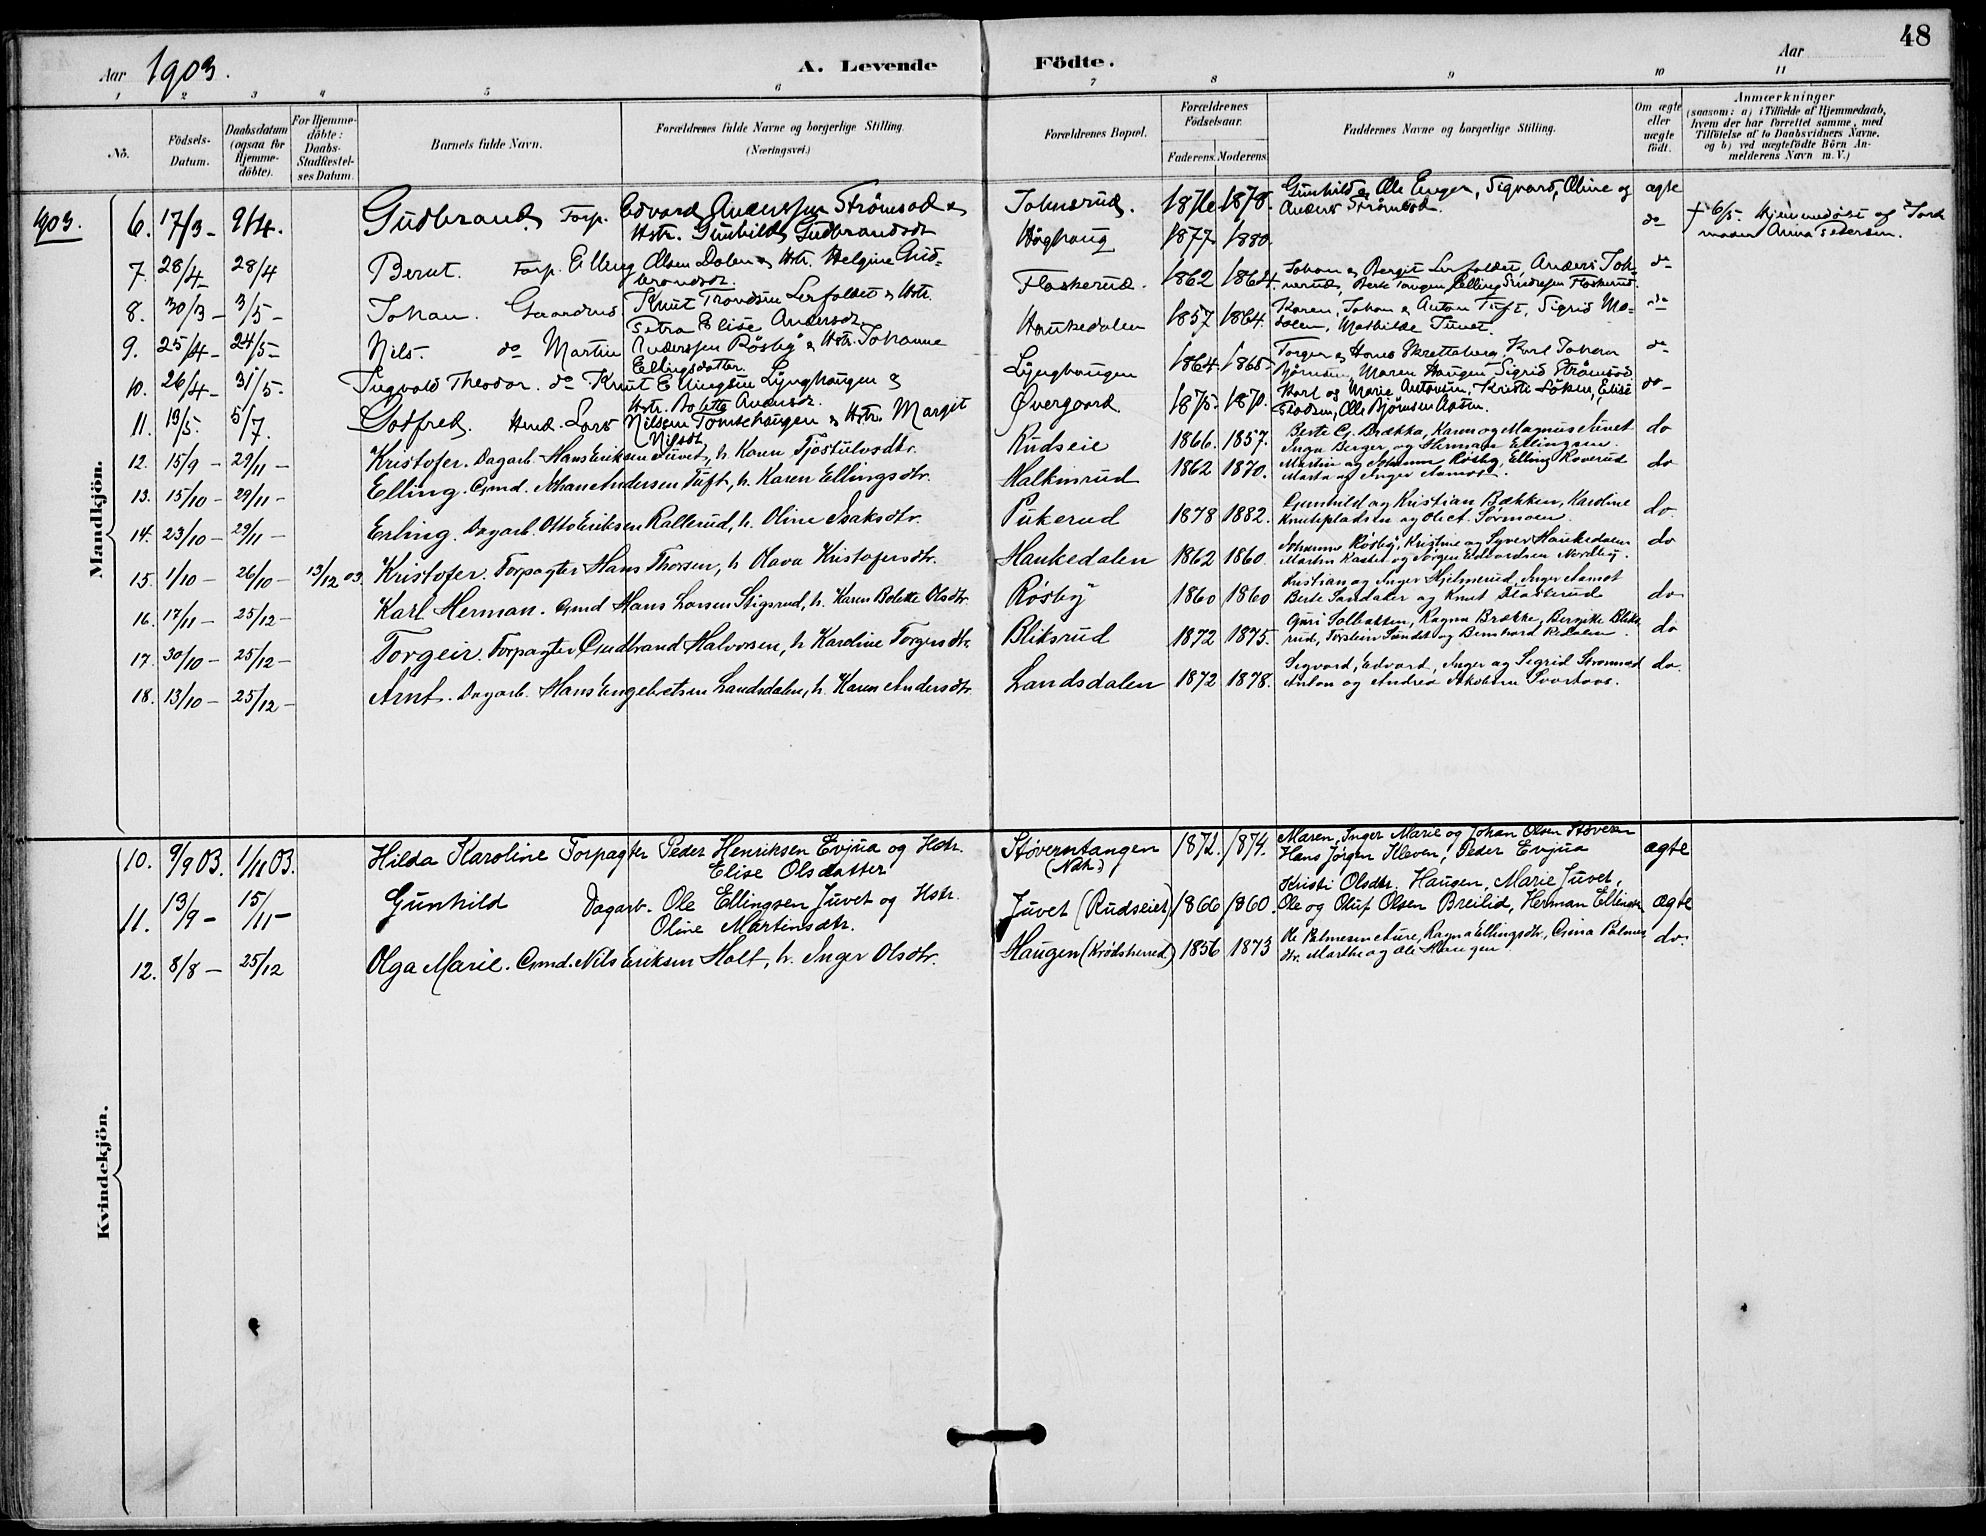 48
Aar 1903.
A. Levende Födte.
Aar
1 2 3 4 5 6 7 8 9 10 11
No.
Födsels-Datum.
Daabsdatum (ogsaa for Hjemme-döbte).
For Hjemme-döbte: Daabs-Stadfæstel-ses Datum.
Barnets fulde Navn.
Forældrenes fulde Navne og borgerlige Stilling.
(Næringsvei.)
Forældrenes Bopæl.
Forældrenes Födselsaar.
Faderens. Moderens.
Faddernes Navne og borgerlige Stilling.
Om ægte eller uægte födt.
Anmærkninger
(saasom: a) i Tilfælde af Hjemmedaab,
hvem der har forrettet samme, med
Tilföielse af to Daabsvidners Navne,
og b) ved uægtefödte Börn An-
melderens Navn m. V.)
Mandkjön.
1903.
6. 17/3 - 9/4. Gudbrand. Forp. Edvard Anderssen Strömsod & Hstr. Gunhild Gudbrandsdt Johnsrud. 1876 1878. Gunhild og Ole Enger, Sigvard, Oline og Anders Strömsod. ægte
7. 28/4 - 28/4 Bernt. Forp. Elling Olsen Dalen & Hstr. Helgine Gudbrandsdt. Höghaug 1877 1880. do + 6/5. Hjemmedöbt af Jordmoder Anna Pedersen.
8. 30/3 - 3/5 - Johan. Gaardbrus Knut Trondsen Lerfaldet & Hstr. Petra Elise Andersdt. Flaskerud. 1862 1864. Johan & Bergit Lerfaldet, Anders Johnsrud, Berte Tangen, Elling Flaskerud. do
9. 25/4 - 24/5 - Nils. do Martin Anderssen Rösby & Hstr. Johanne Ellingsdatter. Haukedalen 1857 1864. Karen, Johan & Anton Tuft, Sigrid Modalen, Mathilde Juvet. do
10. 26/4 - 31/5 - Ingvald Theodor. do Knut Ellingsen Lynghaugen & Hstr. Bolette Andersdt. Lynghaugen 1864 1865 - Torger & Hans Skretteberg, Karl Johan Björnsen, Maren Haugen, Sigrid Strömsod do
11. 19/5. 5/7. Godfred. Hmd. Lars Nilsen Tomtehaugen & Hstr. Margit Nilsdt. Övergaard 1875. 1870. Karl og Marie Antonsen, Kristi Löken, Elise Ole Björnsen do
12. 15/9 - 29/11 - Kristofer. Dagarb. Hans Eriksen Juvet, h. Karen Tjöstulvsdtr. Rudseie 1866. 1857. Berte G. Brækka, Karen og Magnus Juvet Inga Berger og Herman Ellingsen. do
13. 15/10 - 29/11 - Elling. Gmd. Johan Andersen Tuft, h. Karen Ellingsdtr. Halkinrud 1862 1870. Martin og Johanne Rösby, Elling Roverud Marta og Inger Aamot. do
14. 23/10 - 29/11 - Erling. Dagarb. Otto Eriksen Rallerud, h. Oline Isaksdtr. Pukerud 1878 1882. Gunhild og Kristian Bækken, Karoline Knutepladsen og Ole Sörmoen. do.
15. 1/10 - 26/10 - 13/12 03. Kristofer. Forpagter Hans Thorsen, h. Olava Kristofersdtr. Haukedalen 1862 1860. Johanne Rösby, Kristine og Syver Haukedalen Martin og Jörgen Edvardsen Nordby. do
16. 17/11 - 25/12 - Karl Herman. Gmd Hans Larsen Stigsrud, h. Karen Bolette Olsdtr. Rösby 1860 1860 Kristian og Inger Hjelmerud, Inger Aamot Berte Sandaker og Knut Flaskerud do
17. 30/10 - 25/12 - Torgeir. Forpagter Gudbrand Halvorsen, h. Karoline Torgersdtr. Bliksrud 1872 1875. Guri Solbakken, Ragna Brække, Bergitte Bliksrud, Torstein Sandet og Bernhard do
18. 13/10 - 25/12 - Arnt. Dagarb. Hans Engebretsen Landsdalen, h. Karen Andersdtr. Landsdalen 1872 1878. Sigvard, Edvard, Inger og Sigrid Strömsod Anton og Andrea Jakobsen Svartaas. do.
Kvindekjön.
10. 9/9 03. 1/11 03. Hilda Karoline Forpagter Peder Henriksen Evjua og Hstr. Elise Olsdatter Störerntangen (Nak.) 1872. 1874. Maren, Inger Marie og Johan Olsen Støveren Hans Jörgen Kleven, Peder Evjua ægte
11. 13/9 - 15/11 - Gunhild Dagarb. Ole Ellingsen Juvet og Hstr. Oline Martinsdtr. Juvet (Rudseiet) 1866 1860. Kristi Olsdtr. Haugen, Marie Juvet, Ole og Oluf Olsen Breilid, Herman Ellingsen ægte
12. 8/8 - 25/12 Olga Marie. Gmd. Nils Eriksen Holt, h. Inger Olsdtr. Haugen (Krödsherred) 1856 1873 Ole Palmesen Aure, Ragna Ellingsdtr, Gina Palmesdtr. Marthe og Ole Haugen do.